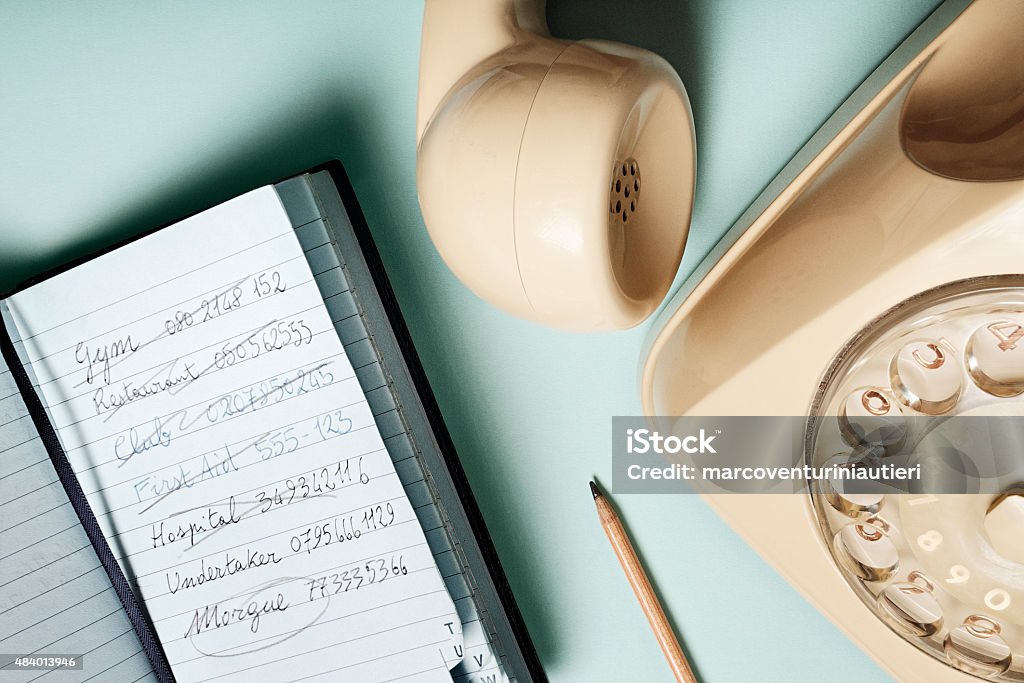 Gym 080 2148 152
Restaurant 050562553
Club 0207850245
First Aid 555-123
Hospital 349342116
Undertaker 0795666 1129
Morgue 773335366
T
U
V
W
iStock™
marcoventuriniautieri
484013946
4
5
6
7
8
9
0